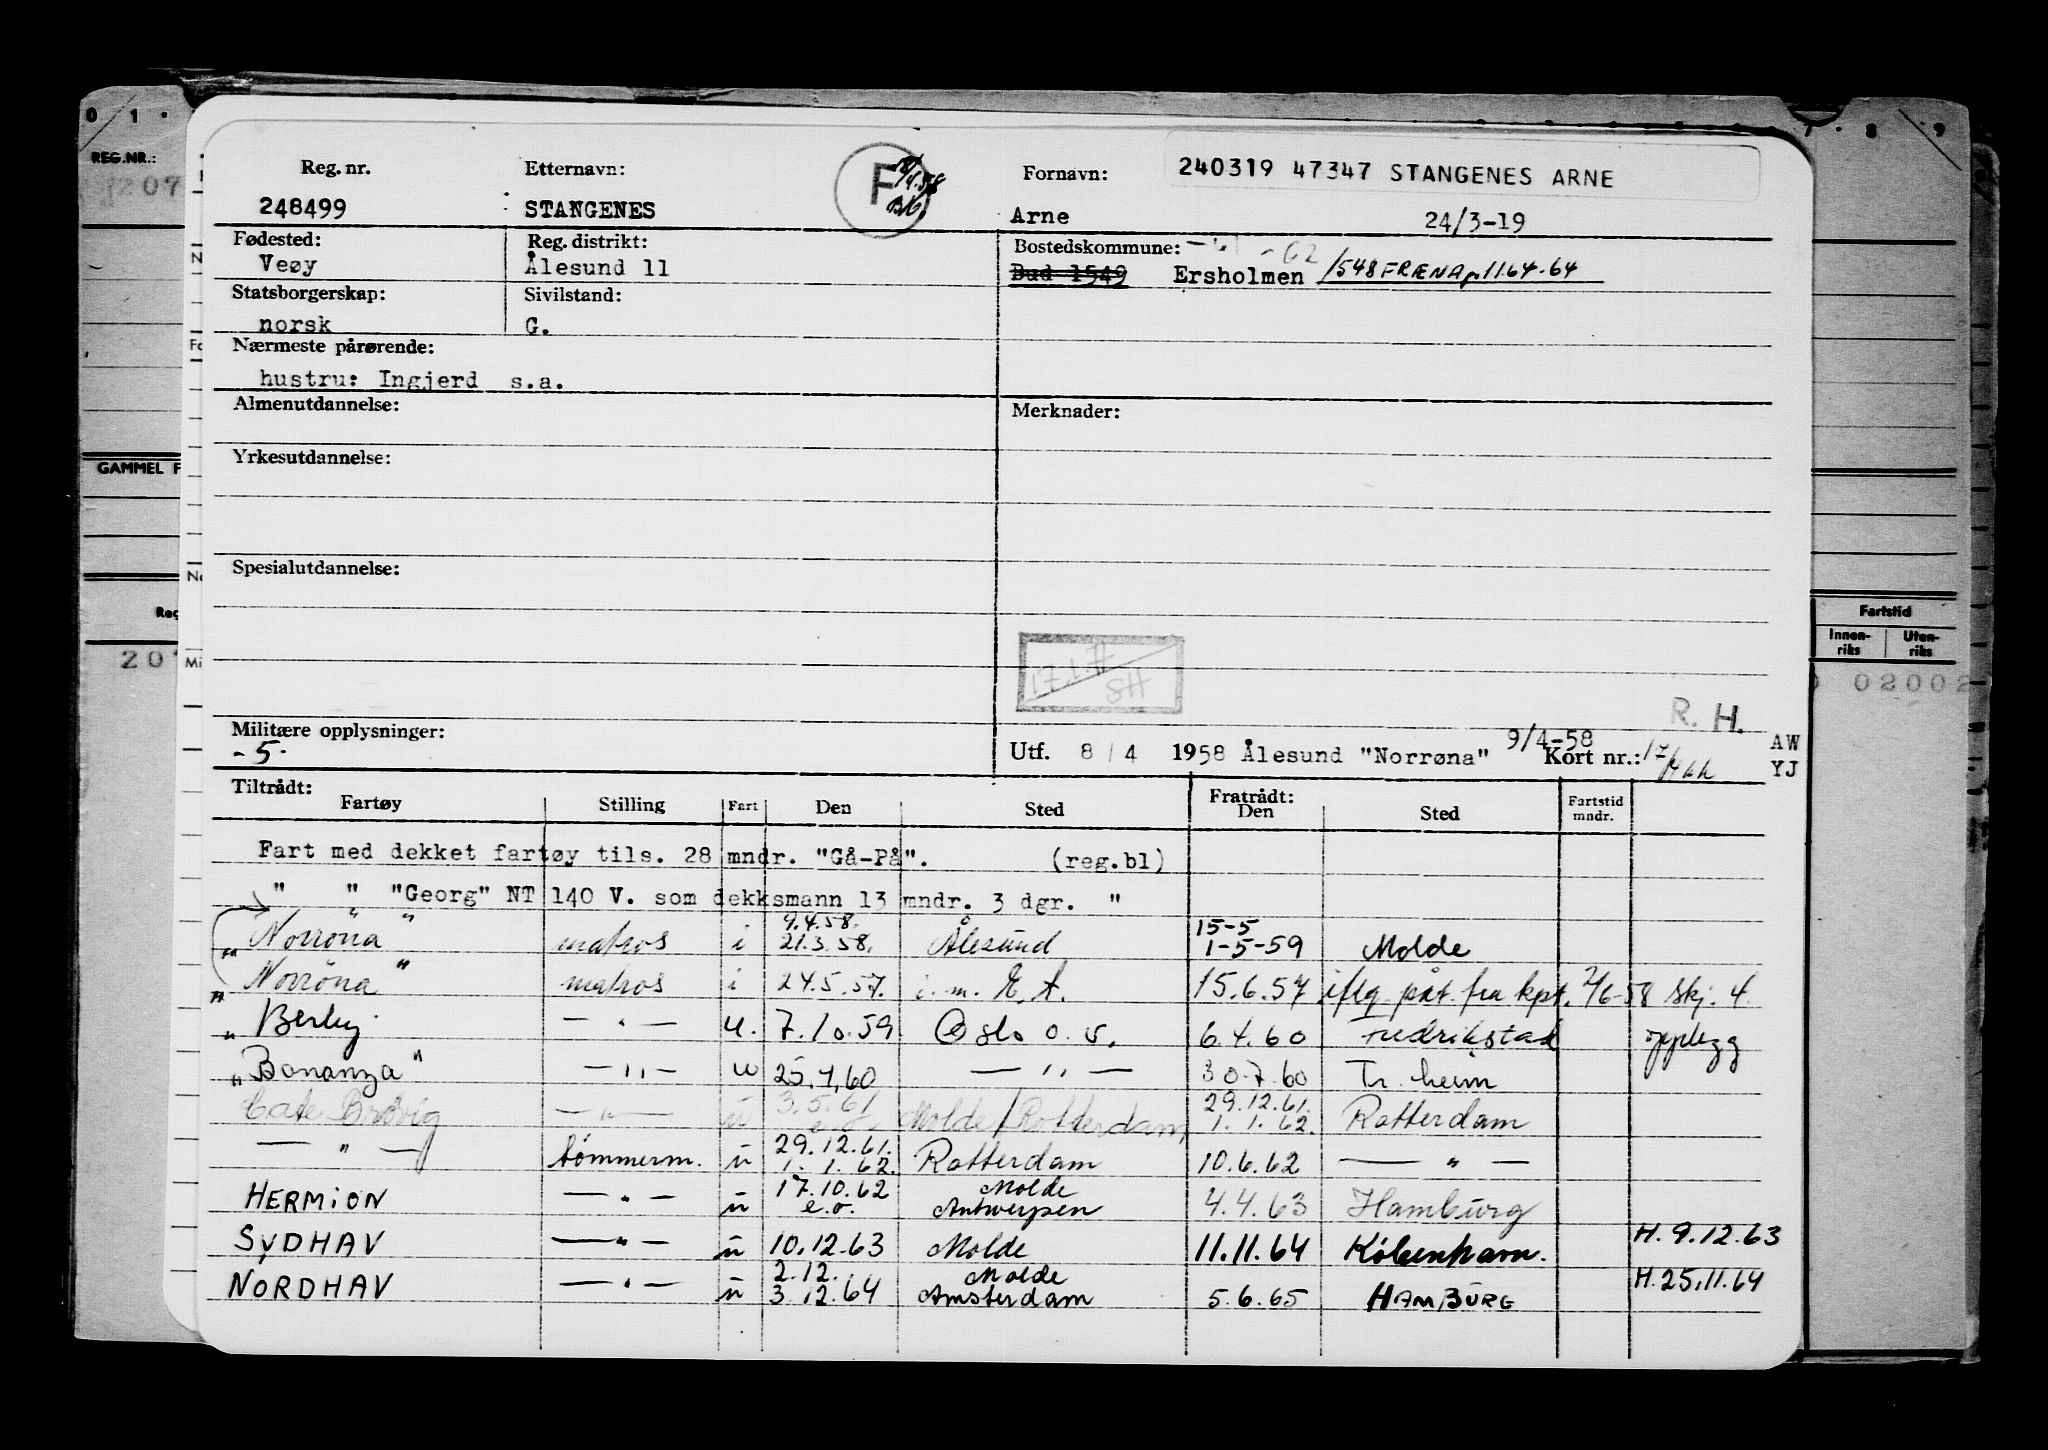 0 1 8 9
REG.NR.:
207
GAMMEL F
Reg
20
Fartstid
Innen-riks Uten-riks
02002
Reg. nr. Etternavn: F Fornavn: 240319 47347 STANGENES ARNE
248499 STANGENES Arne 24/3-19
Fødested: Reg. distrikt: Bostedskommune: -61 -62
Veøy Ålesund 11 Bud 1549 Ersholmen 1548 FRÆNA p. 1164-64
Statsborgerskap: Sivilstand:
norsk G.
Nærmeste pårørende:
hustru: Ingjerd s.a.
Almenutdannelse: Merknader:
Yrkesutdannelse:
Spesialutdannelse:
R. H.
Militære opplysninger:
-5-
Utf. 8/4 1958 Ålesund "Norrøna" 9/4-58 Kort nr.: AW
YJ
Tiltrådt: Fratrådt:
Fartøy Stilling Fart Den Sted Den Sted Fartstid mndr.
Fart med dekket fartøy tils. 28 mndr. "Gå-På". (reg.bl)
" " "Georg" NT 140 V. som dekksmann 13 mndr. 3 dgr. "
9.4.58. 15-5
"Norrøna" matros i 21.3.58. Ålesund 1-5-59 Molde
"Norrøna" matros i 24.5.57. i. m. E. A. 15.6.57 iflg. påt. fra kpt. 2/6-58 skj. 4
"Berby — " — u. 7.10.59 Oslo o. v. 6.4.60 Fredrikstad opplegg
"Bonanza" — " — u 25.4.60 — " — 30.7.60 Tr. heim
3.5.61 29.12.61.
Cate Brøvig — " — u e.o. Molde/Rotterdam, 1.1.62. Rotterdam
29.12.61.
— " — tømmerm. u 1.1.62. Rotterdam 10.6.62 — " —
17.10.62 Molde
HERMION — " — u e.o. Antwerpen 4.4.63 Hamburg
SYDHAV — " — u 10.12.63 Molde 11.11.64 København. H. 9.12.63
2.12. Molde
NORDHAV — " — u 3.12.64 Amsterdam 5.6.65 HAMBURG H. 25.11.64